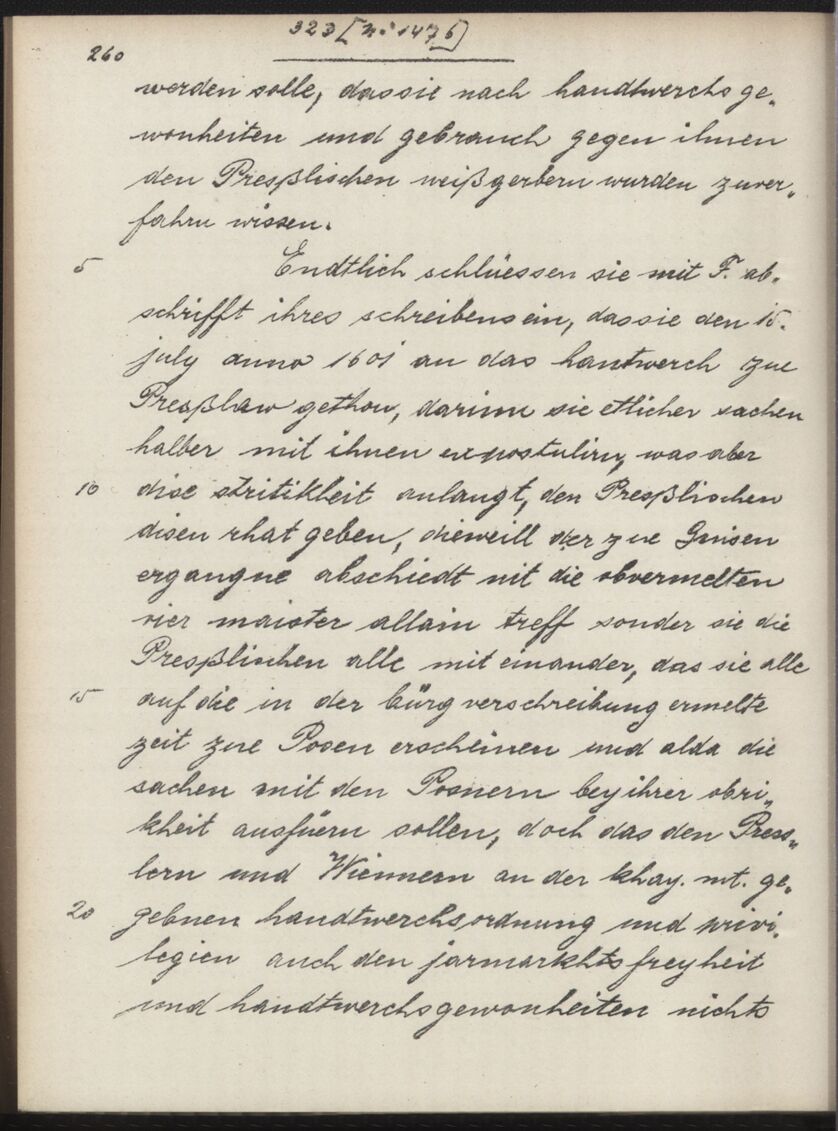 323 [No 1476]
260
werden solle, das sie nach handtwerchs ge„
wonheiten und gebrauch gegen ihnen
den Presßlischen weißgerbern wurden zuver„
fahrn wissen.
5 Endtlich schlüessen sie mit F. ab„
schrifft ihres schreibens ein, das sie den 15.
july anno 1601 an das hantwerch zue
Presßlaw gethon, darinn sie etlicher sachen
halber mit ihnen expostulirn, was aber
10 dise stritikheit anlangt, den Presßlischen
disen rhat geben, dieweill der zue Gnisen
ergangne abschiedt nit die obvermelten
vier maister allain treff sonder sie die
Presßlischen alle mit einander, das sie alle
15 auf die in der bürgverschreibung ermelte
zeit zue Posen erscheinen und alda die
sachen mit den Posnern bey ihrer obri„
kheit ausfüern sollen, doch das den Press„
lern und Wiennern an der khay. mt. ge„
20 gebnen handtwerchsordnung und privi„
legien auch den jarmarkhtsfreyheit
und handtwerchsgewonheiten nichts